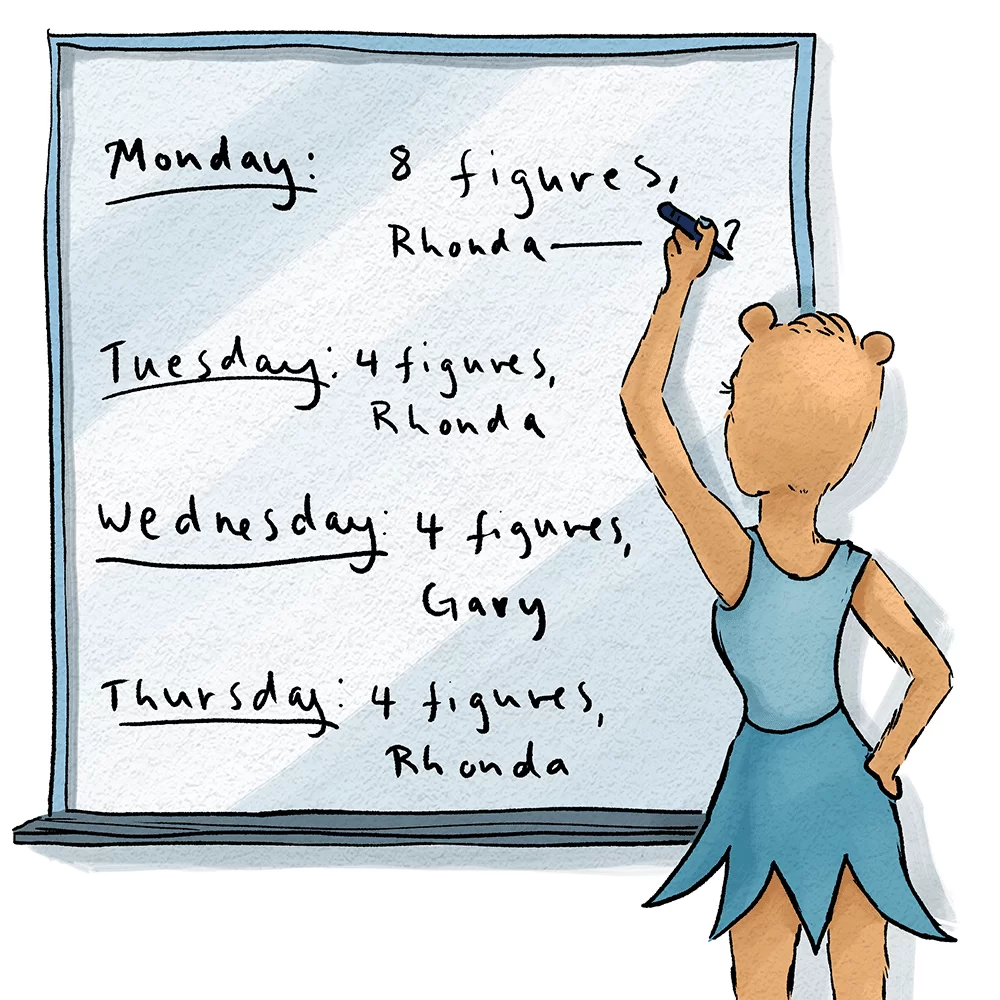 Monday: 8 figures,
Rhonda — ?
Tuesday: 4 figures,
Rhonda
Wednesday: 4 figures,
Gary
Thursday: 4 figures,
Rhonda